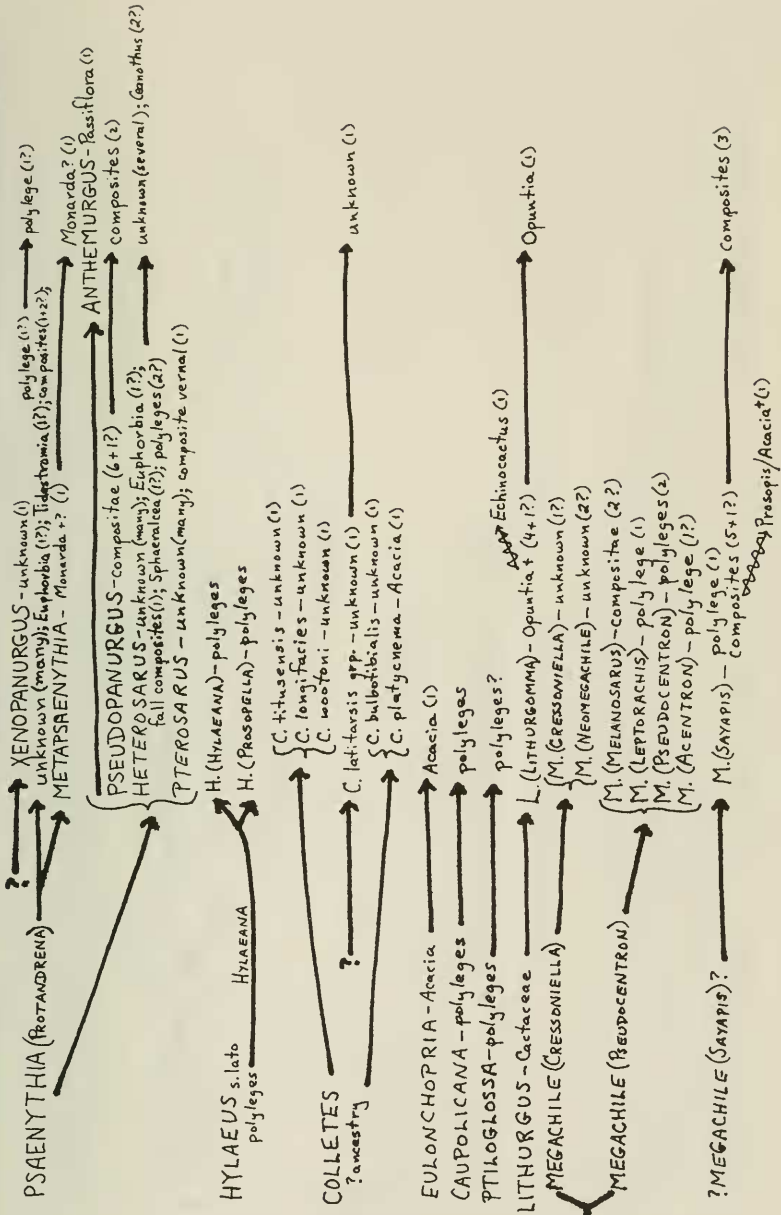 ? XENOPANURGUS-unknown (1) polylege (1?) polylege (1?)
PSAENYTHIA (PROTANDRENA) unknown (many); Euphorbia (1?); Tidestromia (1?); composites (1+2?)
METAPSAENYTHIA - Monarda+? (1) Monarda? (1)
ANTHEMURGUS-Passiflora (1)
PSEUDOPANURGUS-compositae (6+1?) composites (2)
HETEROSARUS-unknown (many); Euphorbia (1?);
fall composites (1); Sphaeralcea (1?); polyleges (2?) unknown (several); Ceanothus (2?)
PTEROSARUS-unknown (many); composite vernal (1)
HYLAEUS s. lato
polyleges
HYLAEANA
H. (HYLAEANA)-polyleges
H. (PROSOPELLA)-polyleges
COLLETES
? ancestry
C. titusensis-unknown (1)
C. longifacies-unknown (1)
C. wootoni-unknown (1)
? C. latitarsis grp.-unknown (1) unknown (1)
C. bulbotibialis-unknown (1)
C. platycnema-Acacia (1)
EULONCHOPRIA-Acacia Acacia (1)
CAUPOLICANA-polyleges polyleges
PTILOGLOSSA-polyleges polyleges?
Echinocactus (1)
LITHURGUS-Cactaceae L. (LITHURGOMMA)-Opuntia+ (4+1?) Opuntia (1)
MEGACHILE (CRESSONIELLA) M. (CRESSONIELLA)-unknown (1?)
M. (NEOMEGACHILE)-unknown (2?)
M. (MELANOSARUS)-compositae (2?)
MEGACHILE (PSEUDOCENTRON) M. (LEPTORACHIS)-polylege (1)
M. (PSEUDOCENTRON)-polyleges (2)
M. (ACENTRON)-polylege (1?)
? MEGACHILE (SAYAPIS)? M. (SAYAPIS)-polylege (1)
composites (5+1?) composites (3)
Prosopis/Acacia+ (1)